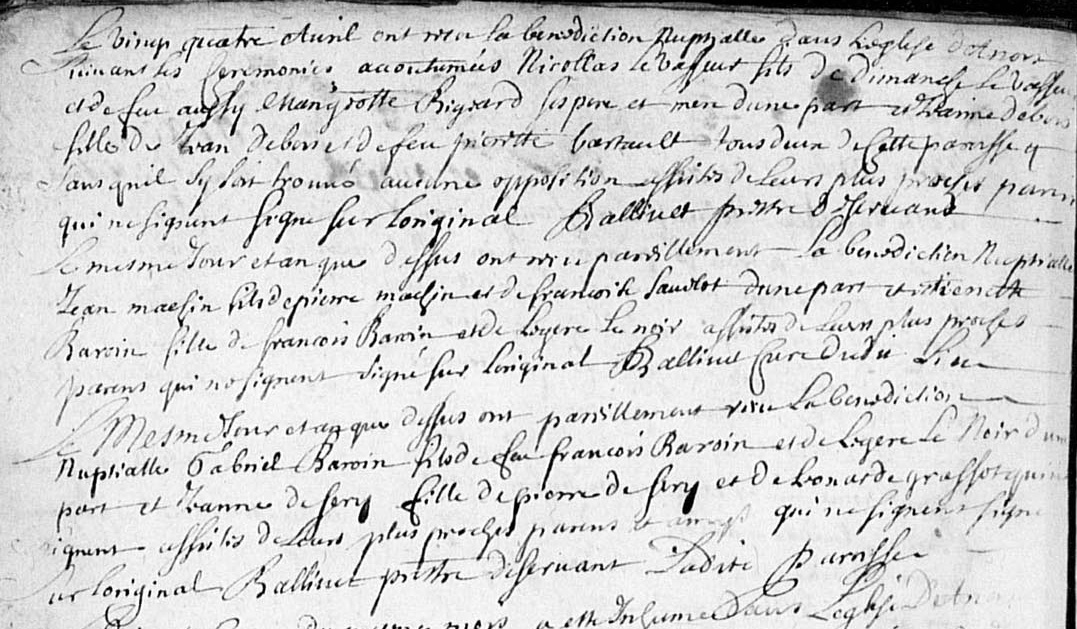 Le vingt quatre Avril ont receu la benediction Nuptialle dans Leglise
suivant les Ceremonies acoutumées Nicollas Le Vasseur fils de Dimanche Le Vasseur
et de feu aussy Mangeotte Rigeard ses pere et mere dune part et Jeanne Debois
fille de Jean Debois et de feu pierette bartault tous deux de Cette paroisse
sans quil sy soit trouvé aucune opposition assistés de Leurs plus proches parens
qui ne signent signe sur Loriginal Ralliuet prestre deservant
Le mesme Jour et an que dessus ont receu pareillement La benediction Nuptialle
Jean machin fils de pierre machin et de francoise dune part et estiennette
Baroin fille de francois Baroin et de Legere Le noir assistés de Leurs plus proches
parens qui ne signent signé sur Loriginal Ralliuet Curé dudit Lieu
Le Mesme Jour et an que dessus ont pareillement receu La benediction
Nuptialle Gabriel Baroin fils de feu francois Baroin et de Legere Le Noir dune
part et Jeanne de sery fille de pierre de sery et de Leonarde grossot qui ne
signent assistés de Leurs plus proches parens et qui ne signent signe
sur Loriginal Ralliuet prestre deservant Ladite Paroisse
mois a esté Inhumé Dans L'eglise